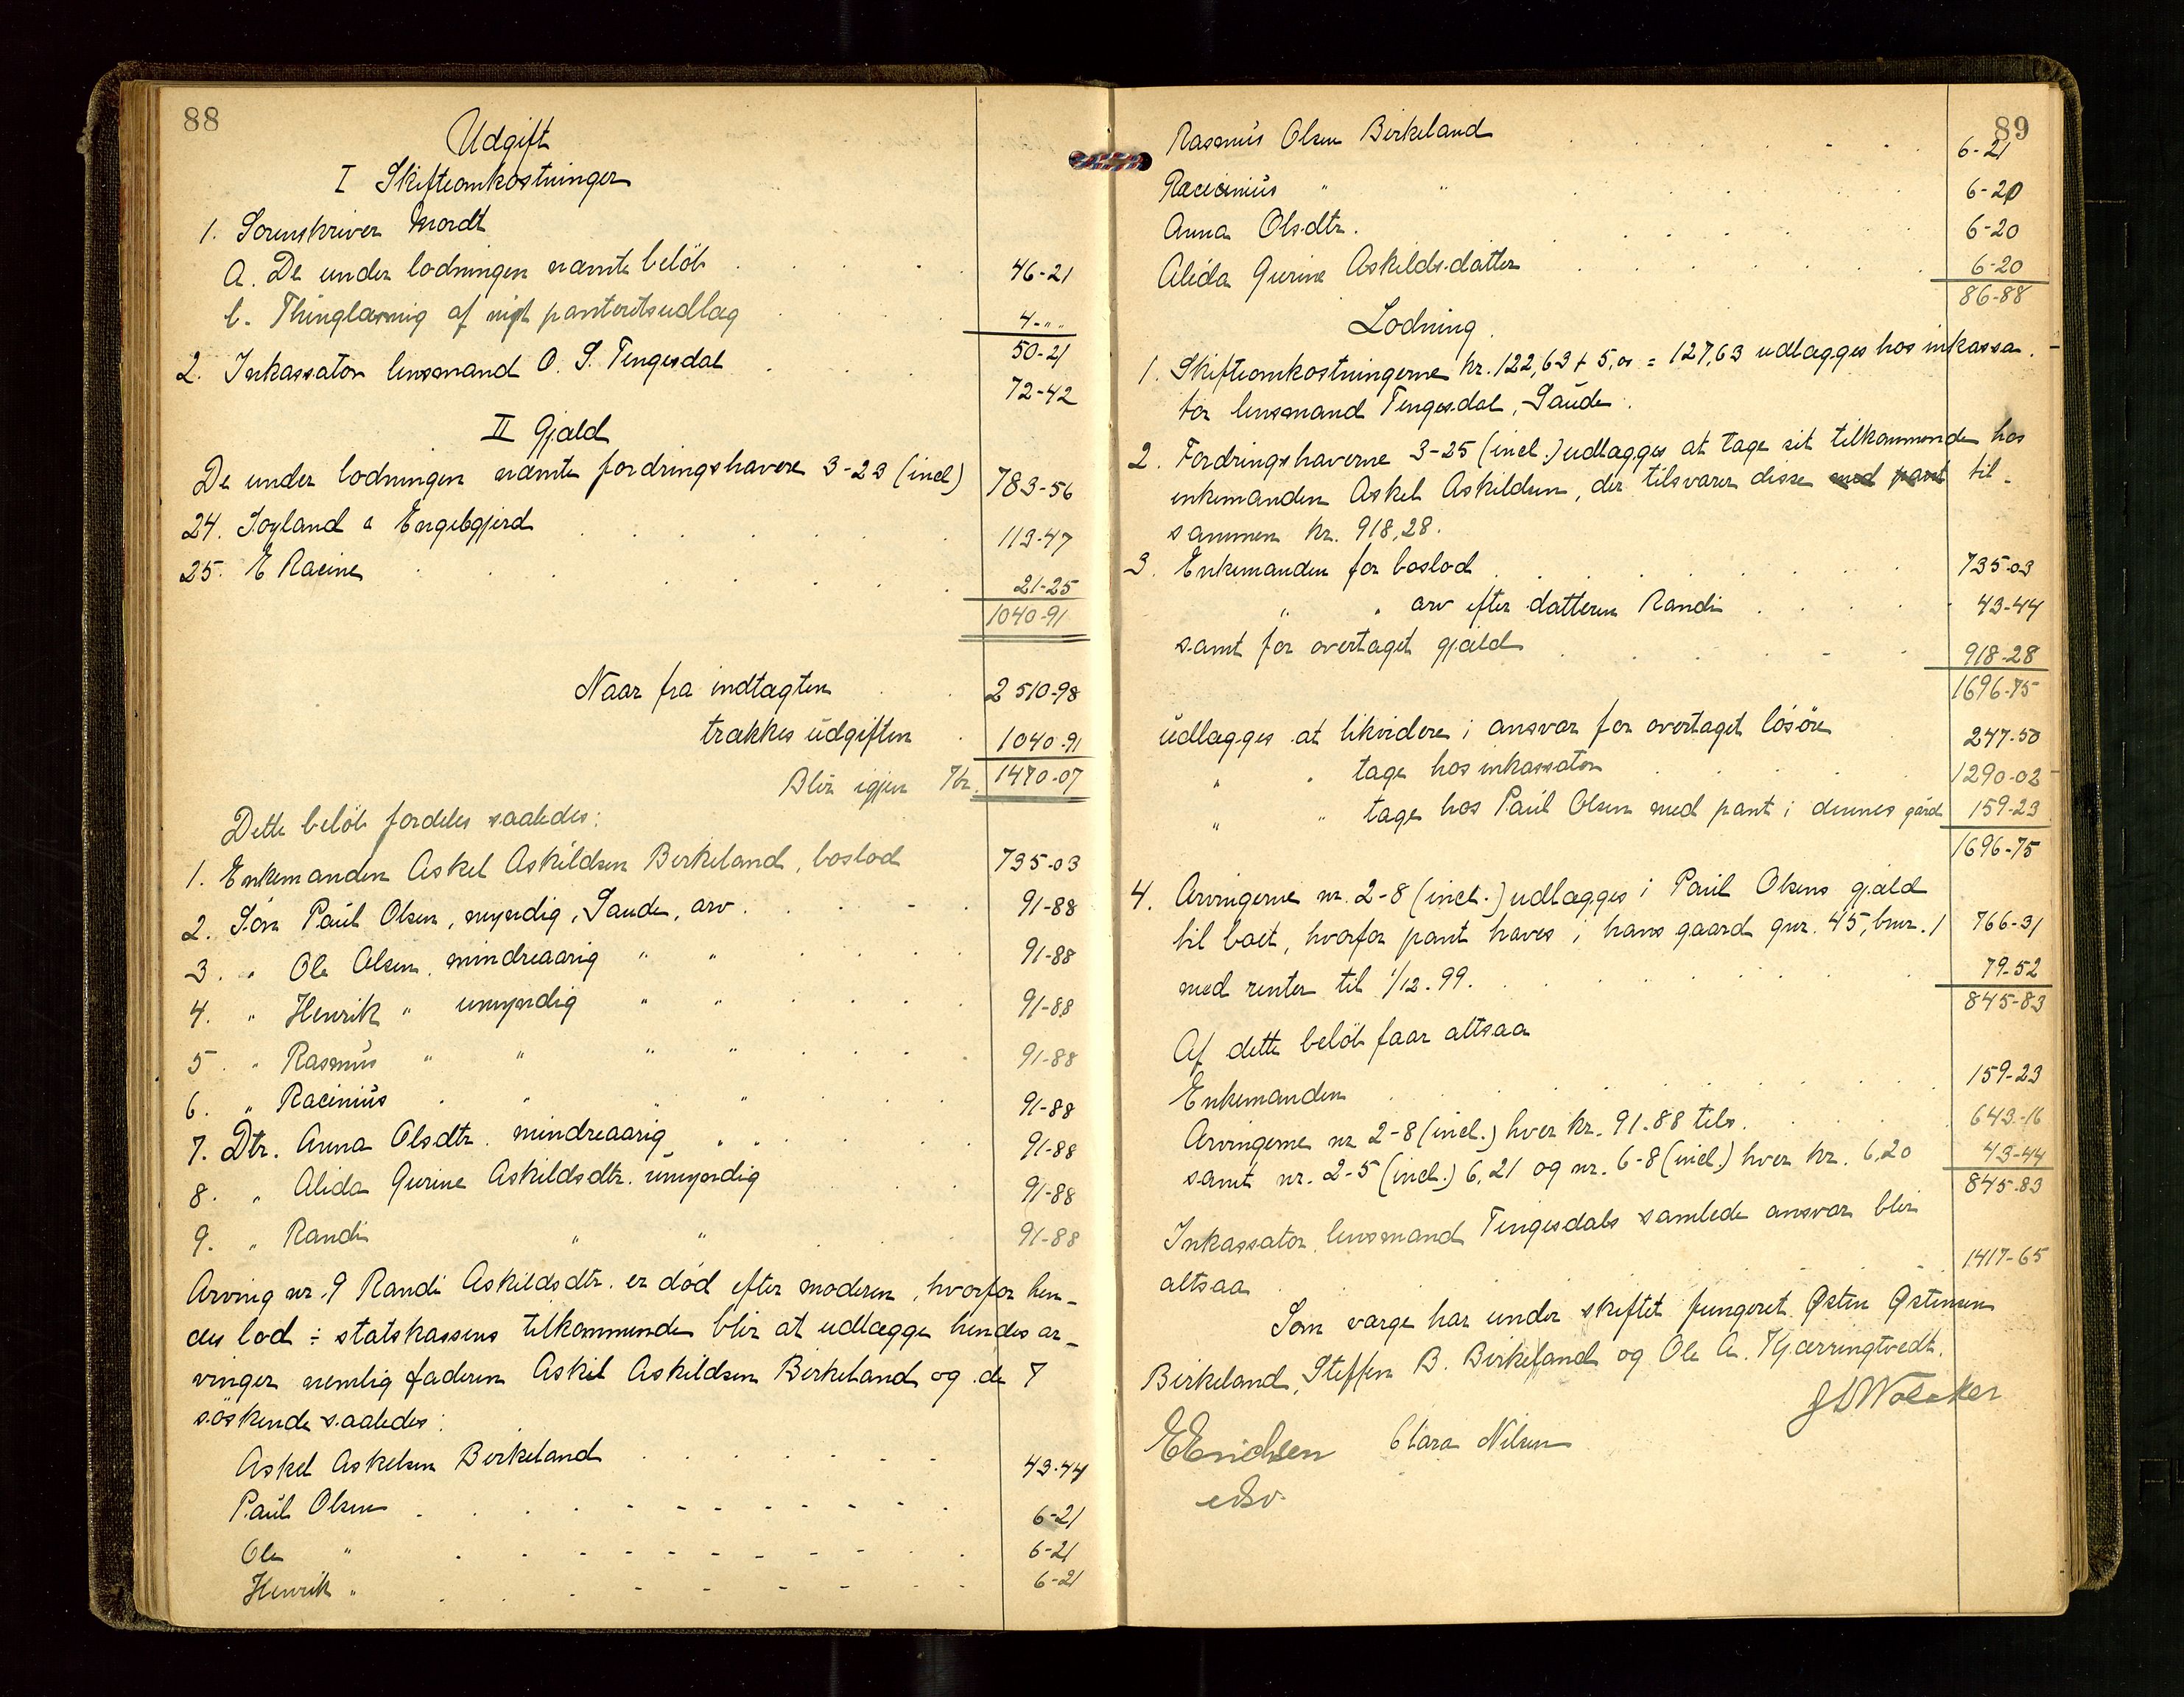 88
Udgift
I Skifteomkostninger
1. Sorenskriver
a. De under lodningen nævnte belöb . . . . 46-21
b. Thinglæsnig af pantretsudlæg . . . 4-""
50-21
2. Inkassator lensmand O. S. Tengesdal . . . 72-42
II Gjæld
De under lodningen nævnte fordringshavere 3-23 (incl) 783-56
24. Soyland & Engelsgjerd . . . . . . . 113-47
25. E Racine . . . . . . 21-25
1040-91
Naar fra indtægten . . 2510-98
trækkes udgiften . 1040-91
Blir igjen Kr. 1470-07
Dette belöb fordeles saaledes:
1. Enkemanden Askel Askildsen Birkeland, boslod 735-03
2. Sön Paul Olsen, myndig, Saude, arv . . . - . 91-88
3. " Ole Olsen, mindreaarig " " . . . . 91-88
4. " Henrik " umyndig " " . . . . 91-88
5. " Rasmus " " " " . . . . 91-88
6. " Racinius " " " " . . . . 91-88
7. Dtr. Anna Olsdtr. mindreaarig " " . . . . 91-88
8. " Alida Gurine Askildsdtr. umyndig . . . 91-88
9. " Randi " " . . . 91-88
Arving nr. 9 Randi Askildsdtr. er död efter moderen, hvorfor hen-
des lod ÷ statskassens tilkommende blir at udlægge hendes ar-
vinger nemlig faderen Askil Askildsen Birkeland og de 7
söskende saaledes:
Askel Askelsen Birkeland . . . . . . 43-44
Paul Olsen . . . . - - - - - . 6-21
Ole " . . - - - - - - . 6-21
Henrik " . . . - - - - . 6-21
89
Rasmus Olsen Birkeland . . . . - - . 6-21
Racinius " " . . . . . . 6-20
Anna Olsdtr. . . . . . . 6-20
Alida Gurine Askildsdatter . . . . . 6-20
86-88
Lodning.
1. Skifteomkostningerne kr. 122,63 + 5,00 = 127,63 udlægges hos inkassa-
tor lensmand Tengesdal, Saude.
2. Fordringshaverne 3-25 (incl.) udlægges at tage sit tilkommende hos
enkemanden Askel Askildsen, der tilsvarer disse med pant til-
sammen kr. 918,28.
3. Enkemanden for boslod . . . . . . . 735-03
" " arv efter datteren Randi . . . . 43-44
samt for overtaget gjæld . . . . . - . 918-28
1696-75
udlægges at likvidere i ansvar for overtaget lösöre 247-50
" " tage hos inkassator . . . . . 1290-02
" " tage hos Paul Olsen med pant i dennes gård 159-23
1696-75
4. Arvingerne nr. 2-8 (incl.) udlægges i Paul Olsens gjæld
til boet, hvorfor pant haves i hans gaard gnr. 45, bnr. 1 766-31
med renter til 1/12.99. . . . . . . . 79-52
845-83
Af dette belöb faar altsaa
Enkemanden . . . . . . . . 159-23
Arvingerne nr 2-8 (incl.) hver kr. 91.88 tils. . . . 643-16
samt nr. 2-5 (incl.) 6,21 og nr. 6-8 (incl.) hver kr. 6,20 43-44
845-83
Inkassator, lensmand Tengesdals samlede ansvar blir
altsaa . . . . . . . . 1417-65
Som værge har under skiftet fungeret Østen Østensen
Birkeland, Steffen B. Birkeland og Ole A. Kjærringtvedt.
E Erichsen Clara Nilsen